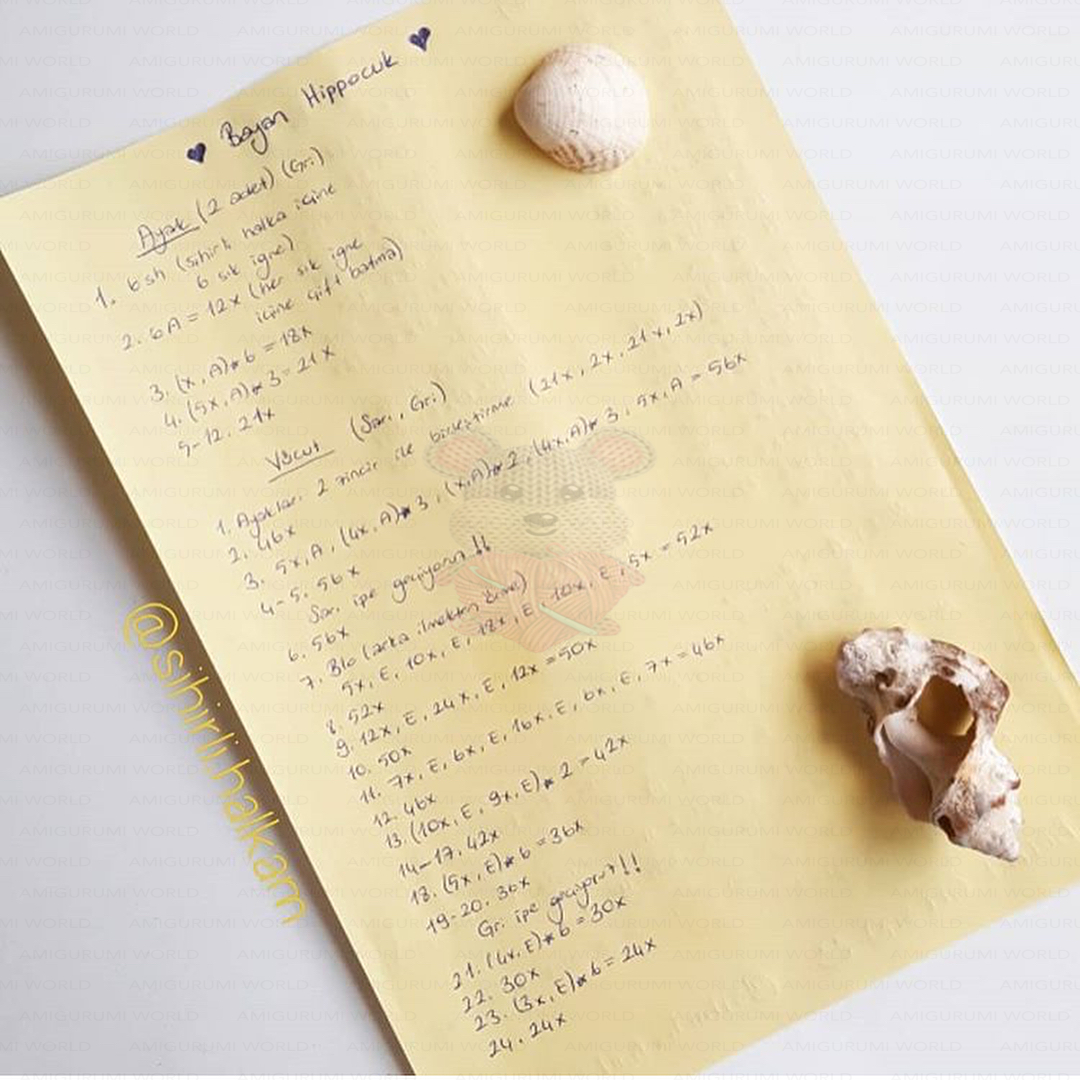 ♥ Bayan Hippocuk ♥
Ayak (2 adet) (Gri)
1. 6sh (sihirli halka içine
6 sık iğne)
2. 6A = 12x (her sık iğne
içine çift batma)
3. (x, A)*6 = 18x
4. (5x, A)*3 = 21x
5-12. 21x
Vücut (Sarı, Gri)
1. Ayakları 2 zincir ile birleştirme (21x, 2x, 21x, 2x)
2. 46x
3. 5x, A, (4x, A)*3, (x, A)*2, (4x, A)*3, 5x, A = 56x
4-5. 56x
Sarı ipe geçiyoruz!!
6. 56x
7. Blo (arka ilmekten örme)
5x, E, 10x, E, 12x, E, 10x, E, 5x = 52x
8. 52x
9. 12x, E, 24x, E, 12x = 50x
10. 50x
11. 7x, E, 6x, E, 16x, E, 6x, E, 7x = 46x
12. 46x
13. (10x, E, 9x, E)*2 = 42x
14-17. 42x
18. (5x, E)*6 = 36x
19-20. 36x
Gri ipe geçiyoruz!!!
21. (4x, E)*6 = 30x
22. 30x
23. (3x, E)*6 = 24x
24. 24x
@sihirli.halkam
AMIGURUMI WORLD